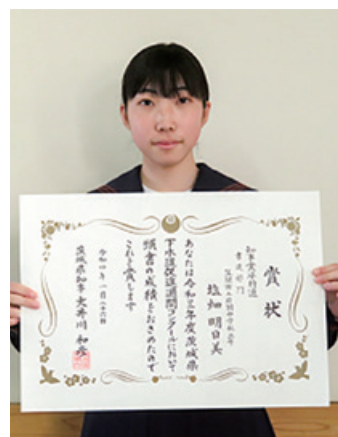 賞状
知事賞受賞
書道部門
塩畑明日美
あなたは令和三年度茨城県
下水道促進週間コンクールにおいて
頭書の成績をおさめたので
これを賞します
令和四年一月二十六日
茨城県知事 大井川和彦